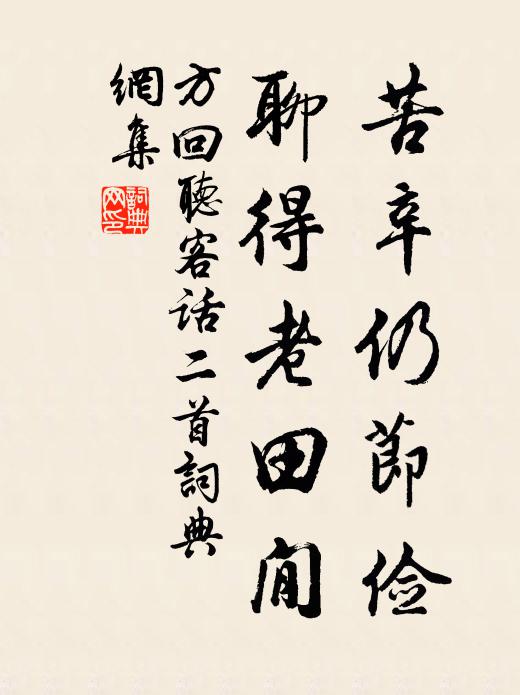 苦辛仍節儉
聊得老田間
方回聽客話二首詞典
網集
詞典
網印